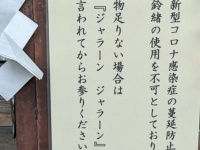 新型コロナ感染症の蔓延防止
鈴緒の使用を不可としており
物足りない場合は
『ジャラーン　ジャラーン』
言われてからお参りください